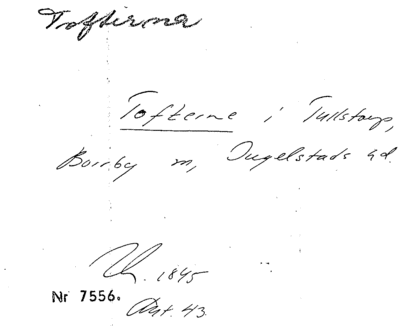 Tofterna
Tofterne i Tullstorp,
Borrby m, Ingelstads hd.
1845
Nr 7556.
Ant. 43.